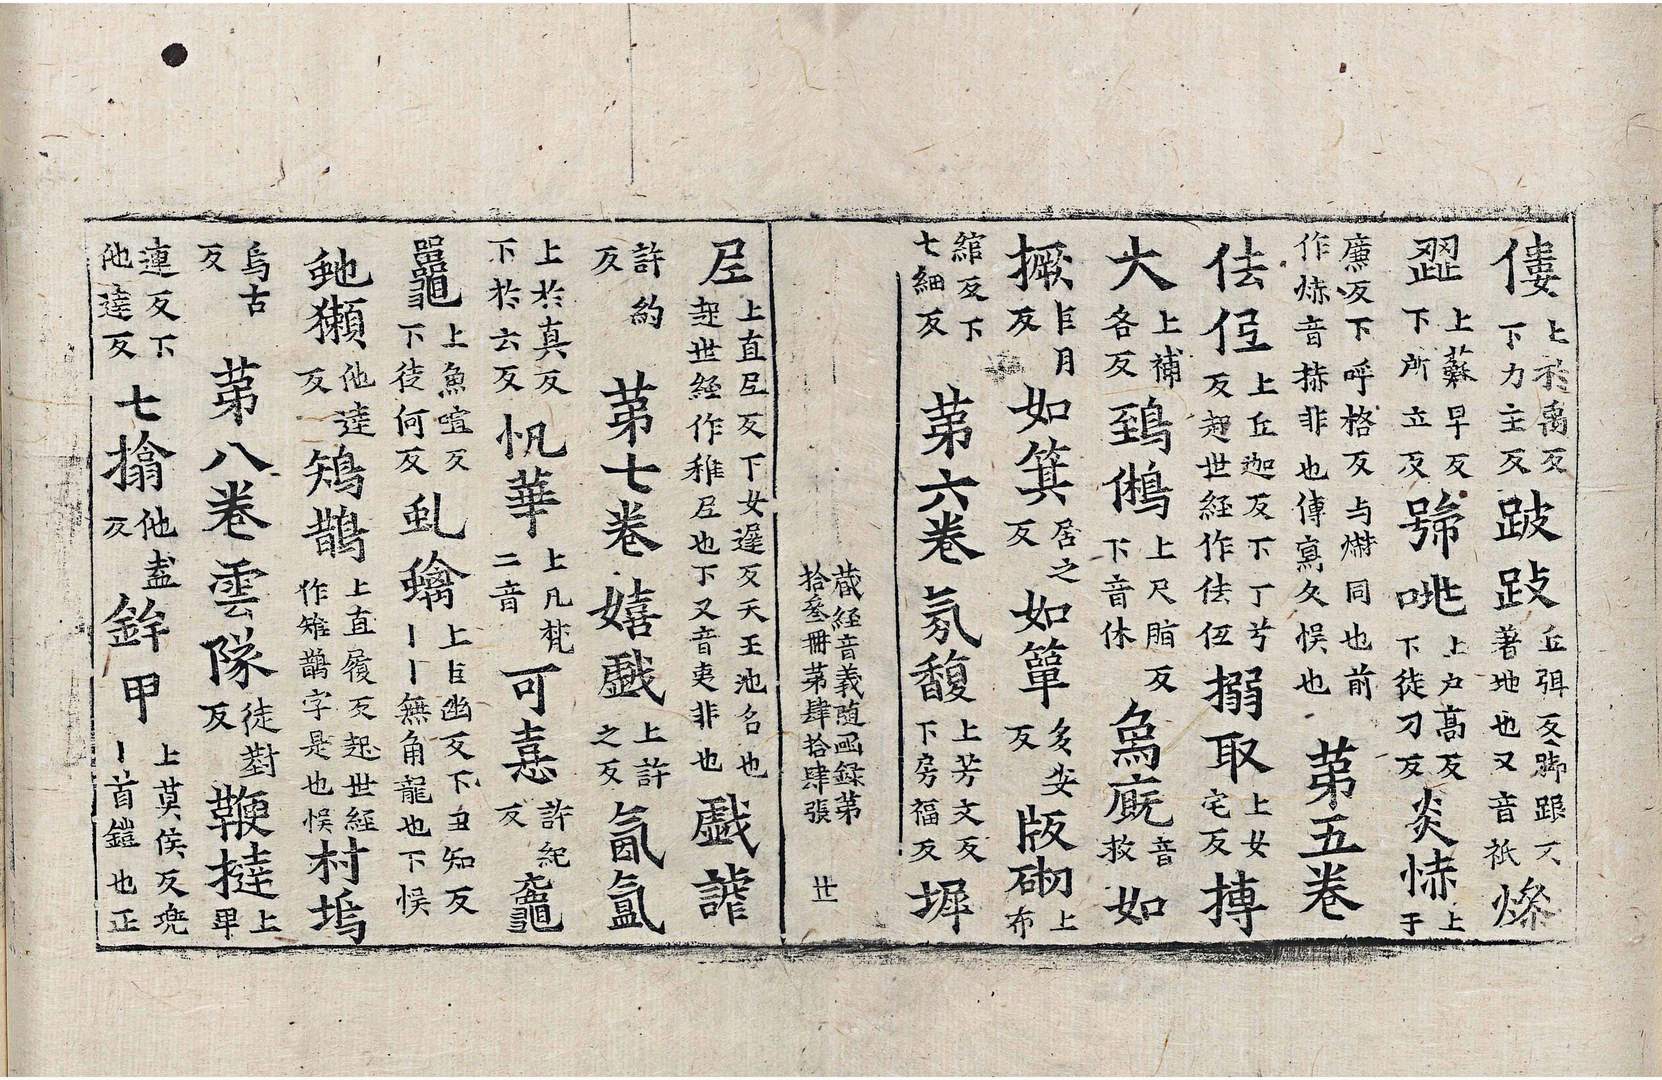 傴上於禹反下力主反跛跂丘弭反脚跟不著地也又音祇燦
澀上蘇早反下所立反號咷上户高反下徒刀反炎㤥上于
廉反下呼格反与㷎同也前作㤥音赫非也傳寫久悮也第五卷
佉伹上丘迦反下丁兮反起世經作佉伍搦取上女宅反摶
大上補各反鵄鵂上尺脂反下音休為廐音救如
撅巨月反如箕居之反如簞多安反版砌上布
綰反下七細反第六卷氛馥上芳文反下房福反墀
蔵経音義随函録第拾叁冊第肆拾肆張 丗
𡰱上直𡰱反下女遲反天王池名也起世経作稚𡰱也下又音夷非也戱謔
許約反第七卷嬉戱上許之反氤氳
上於真反下於云反帆華上凡梵二音可憙許紀反
鼉上魚喧反下徒何反虬螭上巨幽反下丑知反丨丨無角龍也下悮
虵獺他逹反鴙鵲上直履反起世經作雉鵲字是也悮村塢
烏古反第八卷雲隊徒對反鞭撻上卑
連反下他逹反七搶他盍反鉾甲上莫侯反兠丨首鎧也正